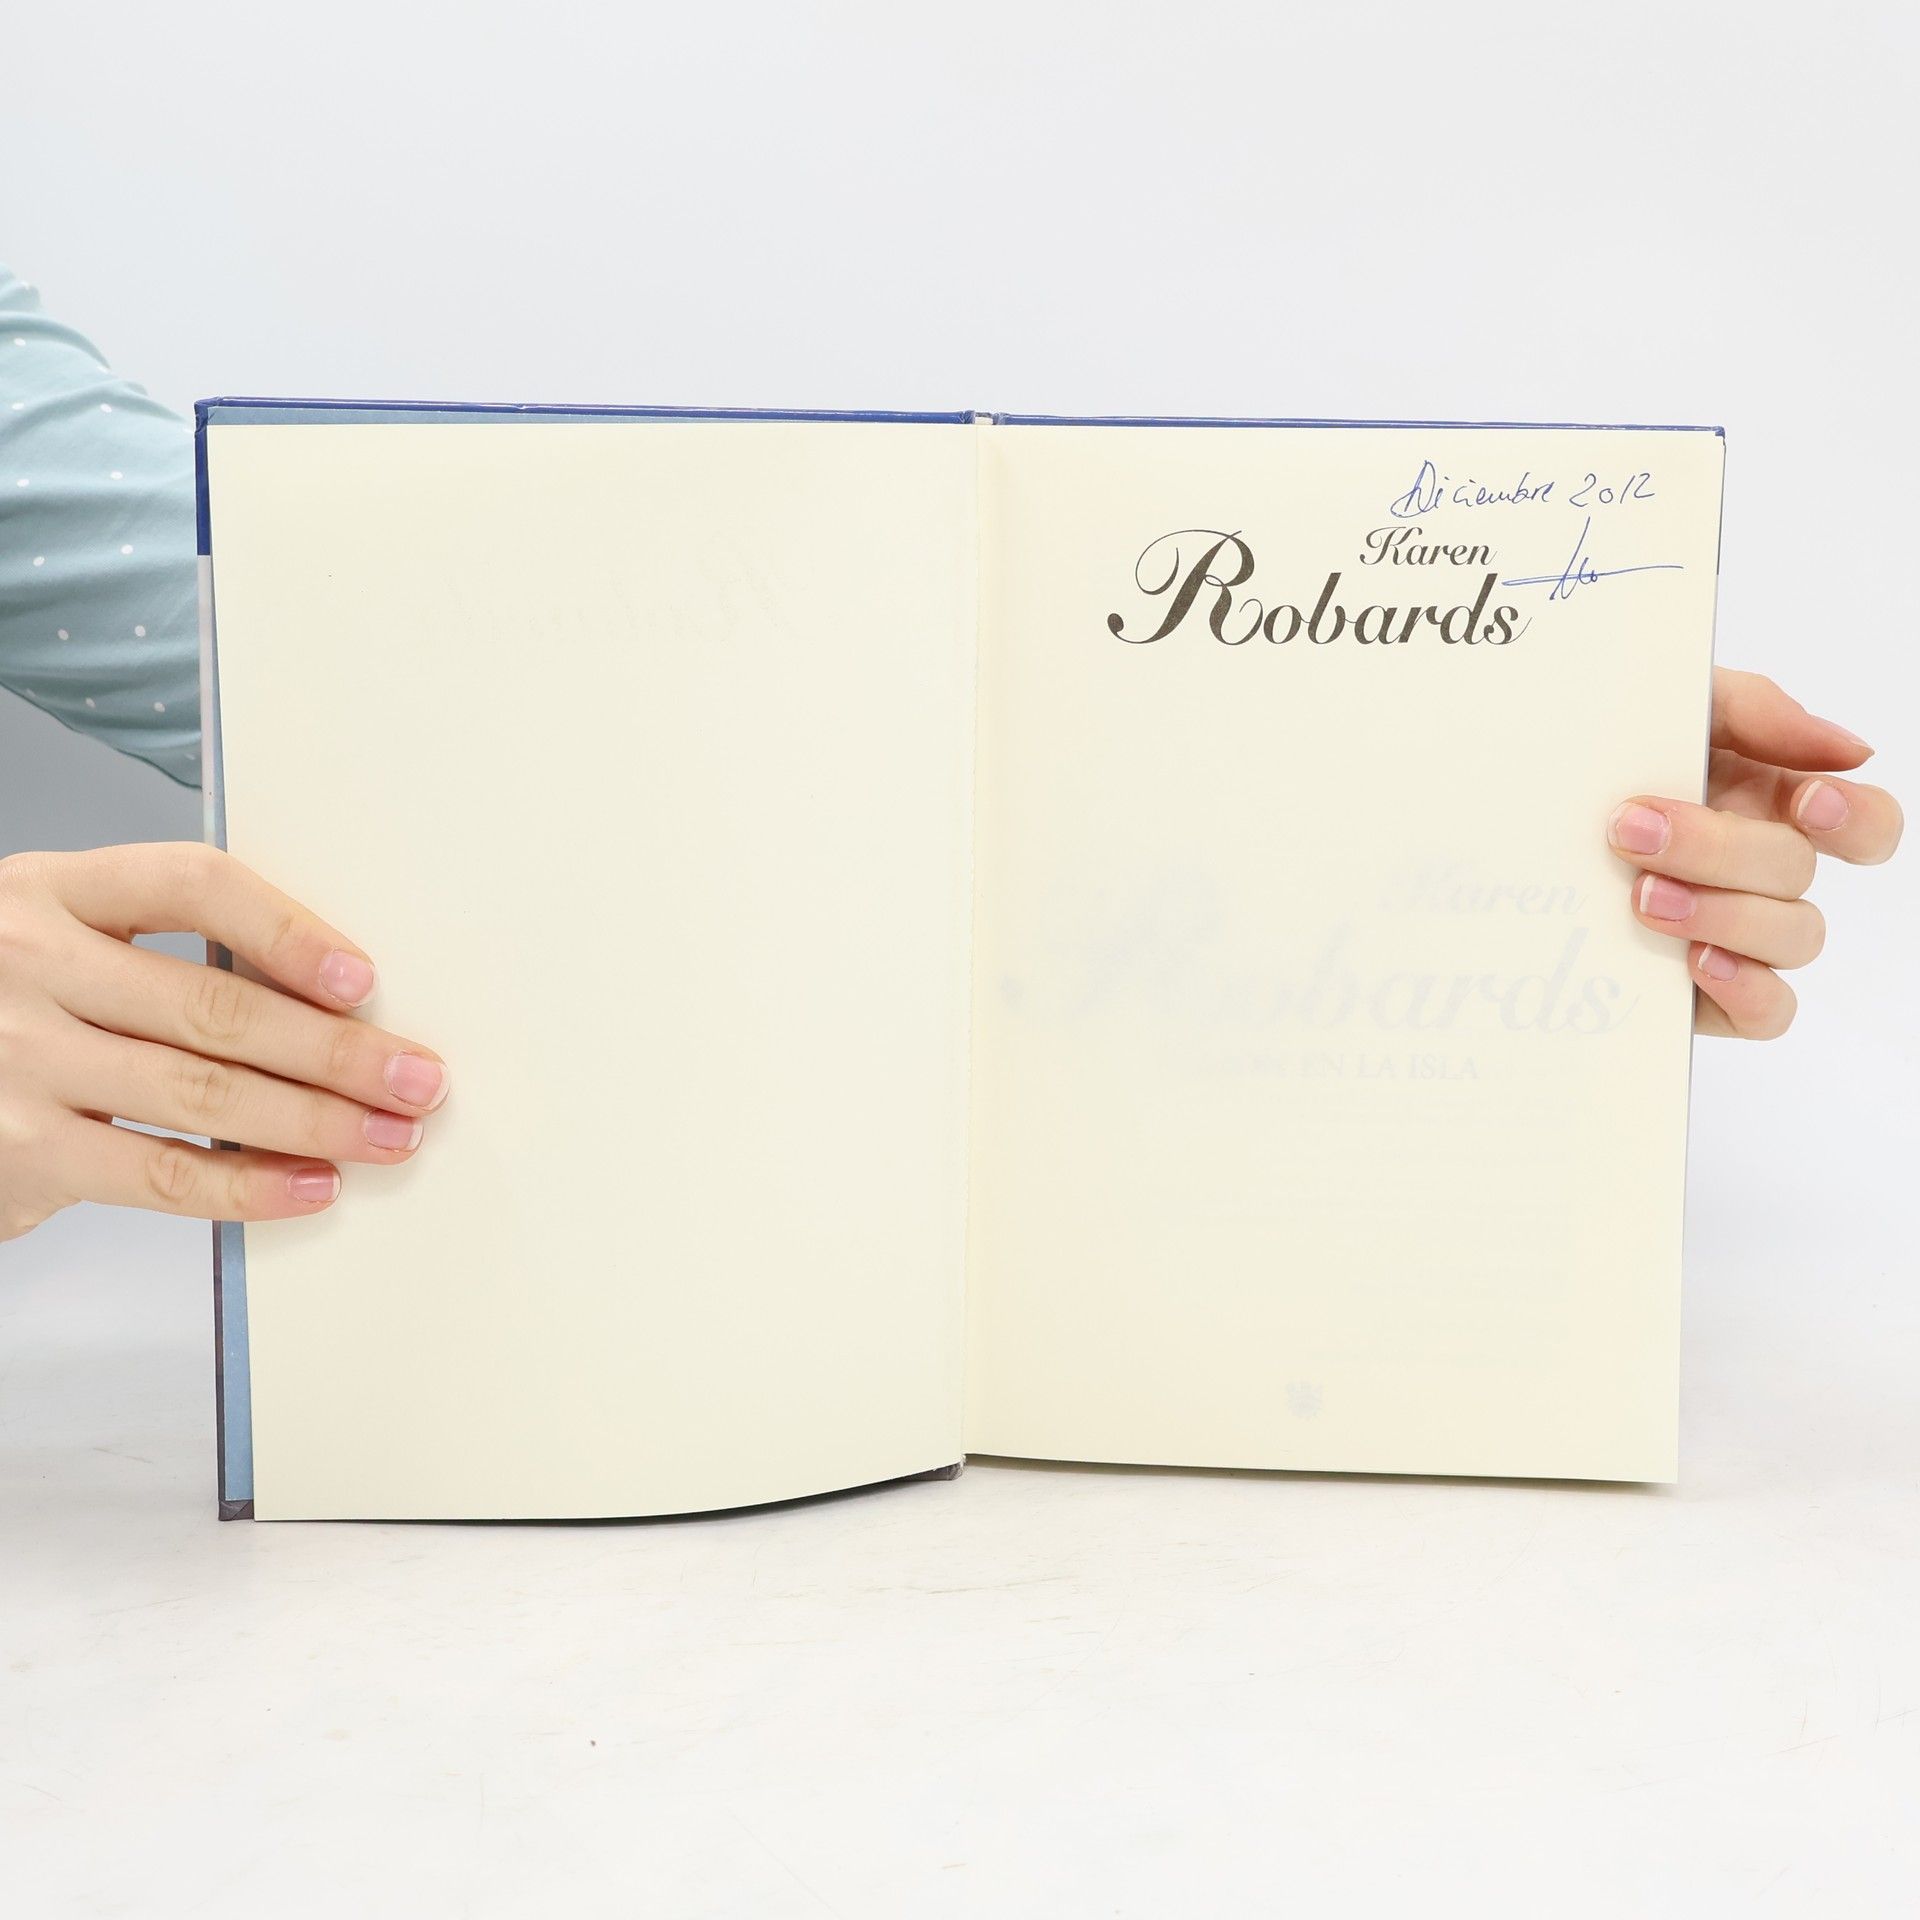 Diciembre 2012
Karen
Robards
Karen
Robards
EN LA ISLA